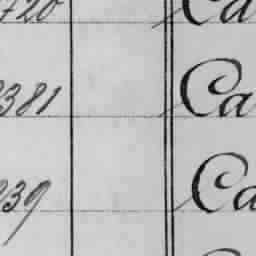 720 Ca
381 Ca
39 Ca